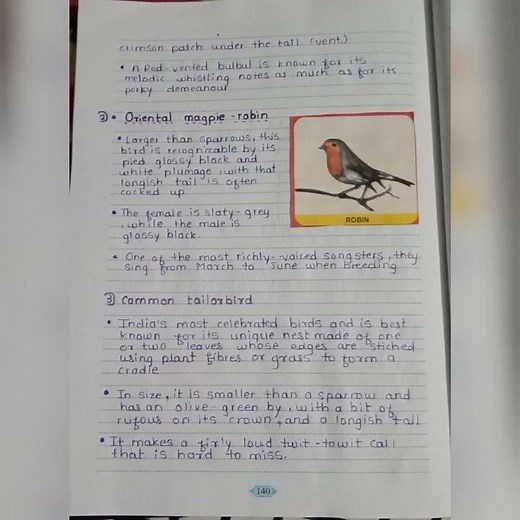 crimson patch under the tail (vent)
• A Red-vented bulbul is known for its
melodic whistling notes as much as for its
perky demeanour
② • Oriental magpie-robin
• Larger than sparrows, this
bird is recognizable by its
pied glossy black and
white plumage, with that
longish tail is often
cocked up
• The female is slaty-grey
, while the male is
glossy black.
ROBIN
• One of the most richly-voiced songsters, they
sing from March to June when breeding
③ Common tailorbird
• India's most celebrated birds and is best
known for its unique nest made of one
or two leaves whose edges are stiched
using plant fibres or grass to form a
cradle
• In size, it is smaller than a sparrow and
has an olive-green by, with a bit of
rufous on its crown, and a longish tail
• It makes a firly loud twit-towit call
that is hard to miss.
140